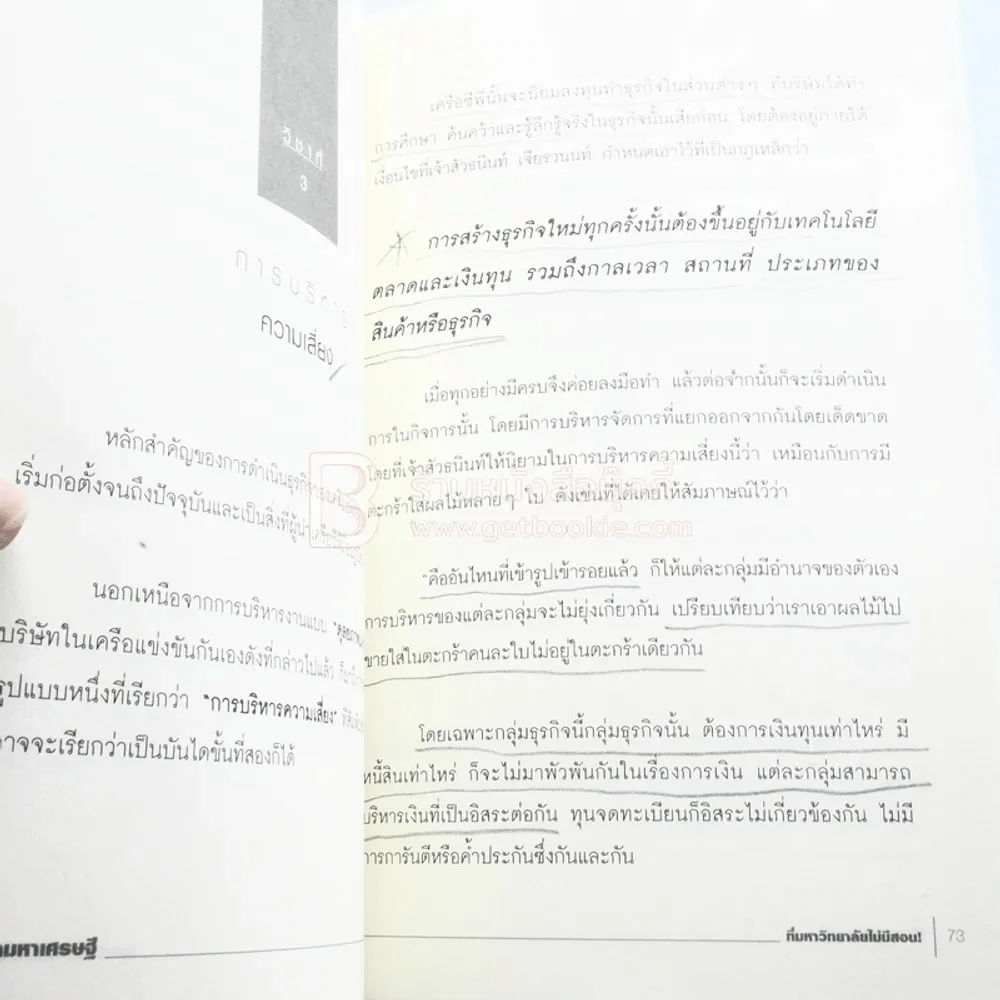 วิชาที่
3
การบริหาร
ความเสี่ยง
หลักสำคัญของการดำเนินธุรกิจของ
เริ่มก่อตั้งจนถึงปัจจุบันและเป็นสิ่งที่ผู้นำ
นอกเหนือจากการบริหารงานแบบ
บริษัทในเครือแข่งขันกันเองดังที่กล่าวไปแล้ว
รูปแบบหนึ่งที่เรียกว่า "การบริหารความเสี่ยง"
อาจจะเรียกว่าเป็นบันไดขั้นที่สองก็ได้
มหาเศรษฐี
เครือซีพีนั้นจะนิยมลงทุนทำธุรกิจในส่วนต่างๆ ที่บริษัทได้ทำ
การศึกษา ค้นคว้าและรู้ลึกรู้จริงในธุรกิจนั้นเสียก่อน โดยต้องอยู่ภายใต้
เงื่อนไขที่เจ้าสัวธนินท์ เจียรวนนท์ กำหนดเอาไว้ที่เป็นกฎเหล็กว่า
การสร้างธุรกิจใหม่ทุกครั้งนั้นต้องขึ้นอยู่กับเทคโนโลยี
ตลาดและเงินทุน รวมถึงกาลเวลา สถานที่ ประเภทของ
สินค้าหรือธุรกิจ
เมื่อทุกอย่างมีครบจึงค่อยลงมือทำ แล้วต่อจากนั้นก็จะเริ่มดำเนิน
การในกิจการนั้น โดยมีการบริหารจัดการที่แยกออกจากกันโดยเด็ดขาด
โดยที่เจ้าสัวธนินท์ให้นิยามในการบริหารความเสี่ยงนี้ว่า เหมือนกับการมี
ตะกร้าใส่ผลไม้หลายๆ ใบ ดังเช่นที่ได้เคยให้สัมภาษณ์ไว้ว่า
www.getbookie.com
"คืออันไหนที่เข้ารูปเข้ารอยแล้ว ก็ให้แต่ละกลุ่มมีอำนาจของตัวเอง
การบริหารของแต่ละกลุ่มจะไม่ยุ่งเกี่ยวกัน เปรียบเทียบว่าเราเอาผลไม้ไป
ขายใส่ในตะกร้าคนละใบไม่อยู่ในตะกร้าเดียวกัน
โดยเฉพาะกลุ่มธุรกิจนี้กลุ่มธุรกิจนั้น ต้องการเงินทุนเท่าไหร่ มี
หนี้สินเท่าไหร่ ก็จะไม่มาพัวพันกันในเรื่องการเงิน แต่ละกลุ่มสามารถ
บริหารเงินที่เป็นอิสระต่อกัน ทุนจดทะเบียนก็อิสระไม่เกี่ยวข้องกัน ไม่มี
การการันตีหรือค้ำประกันซึ่งกันและกัน
ที่มหาวิทยาลัยไม่มีสอน! 73